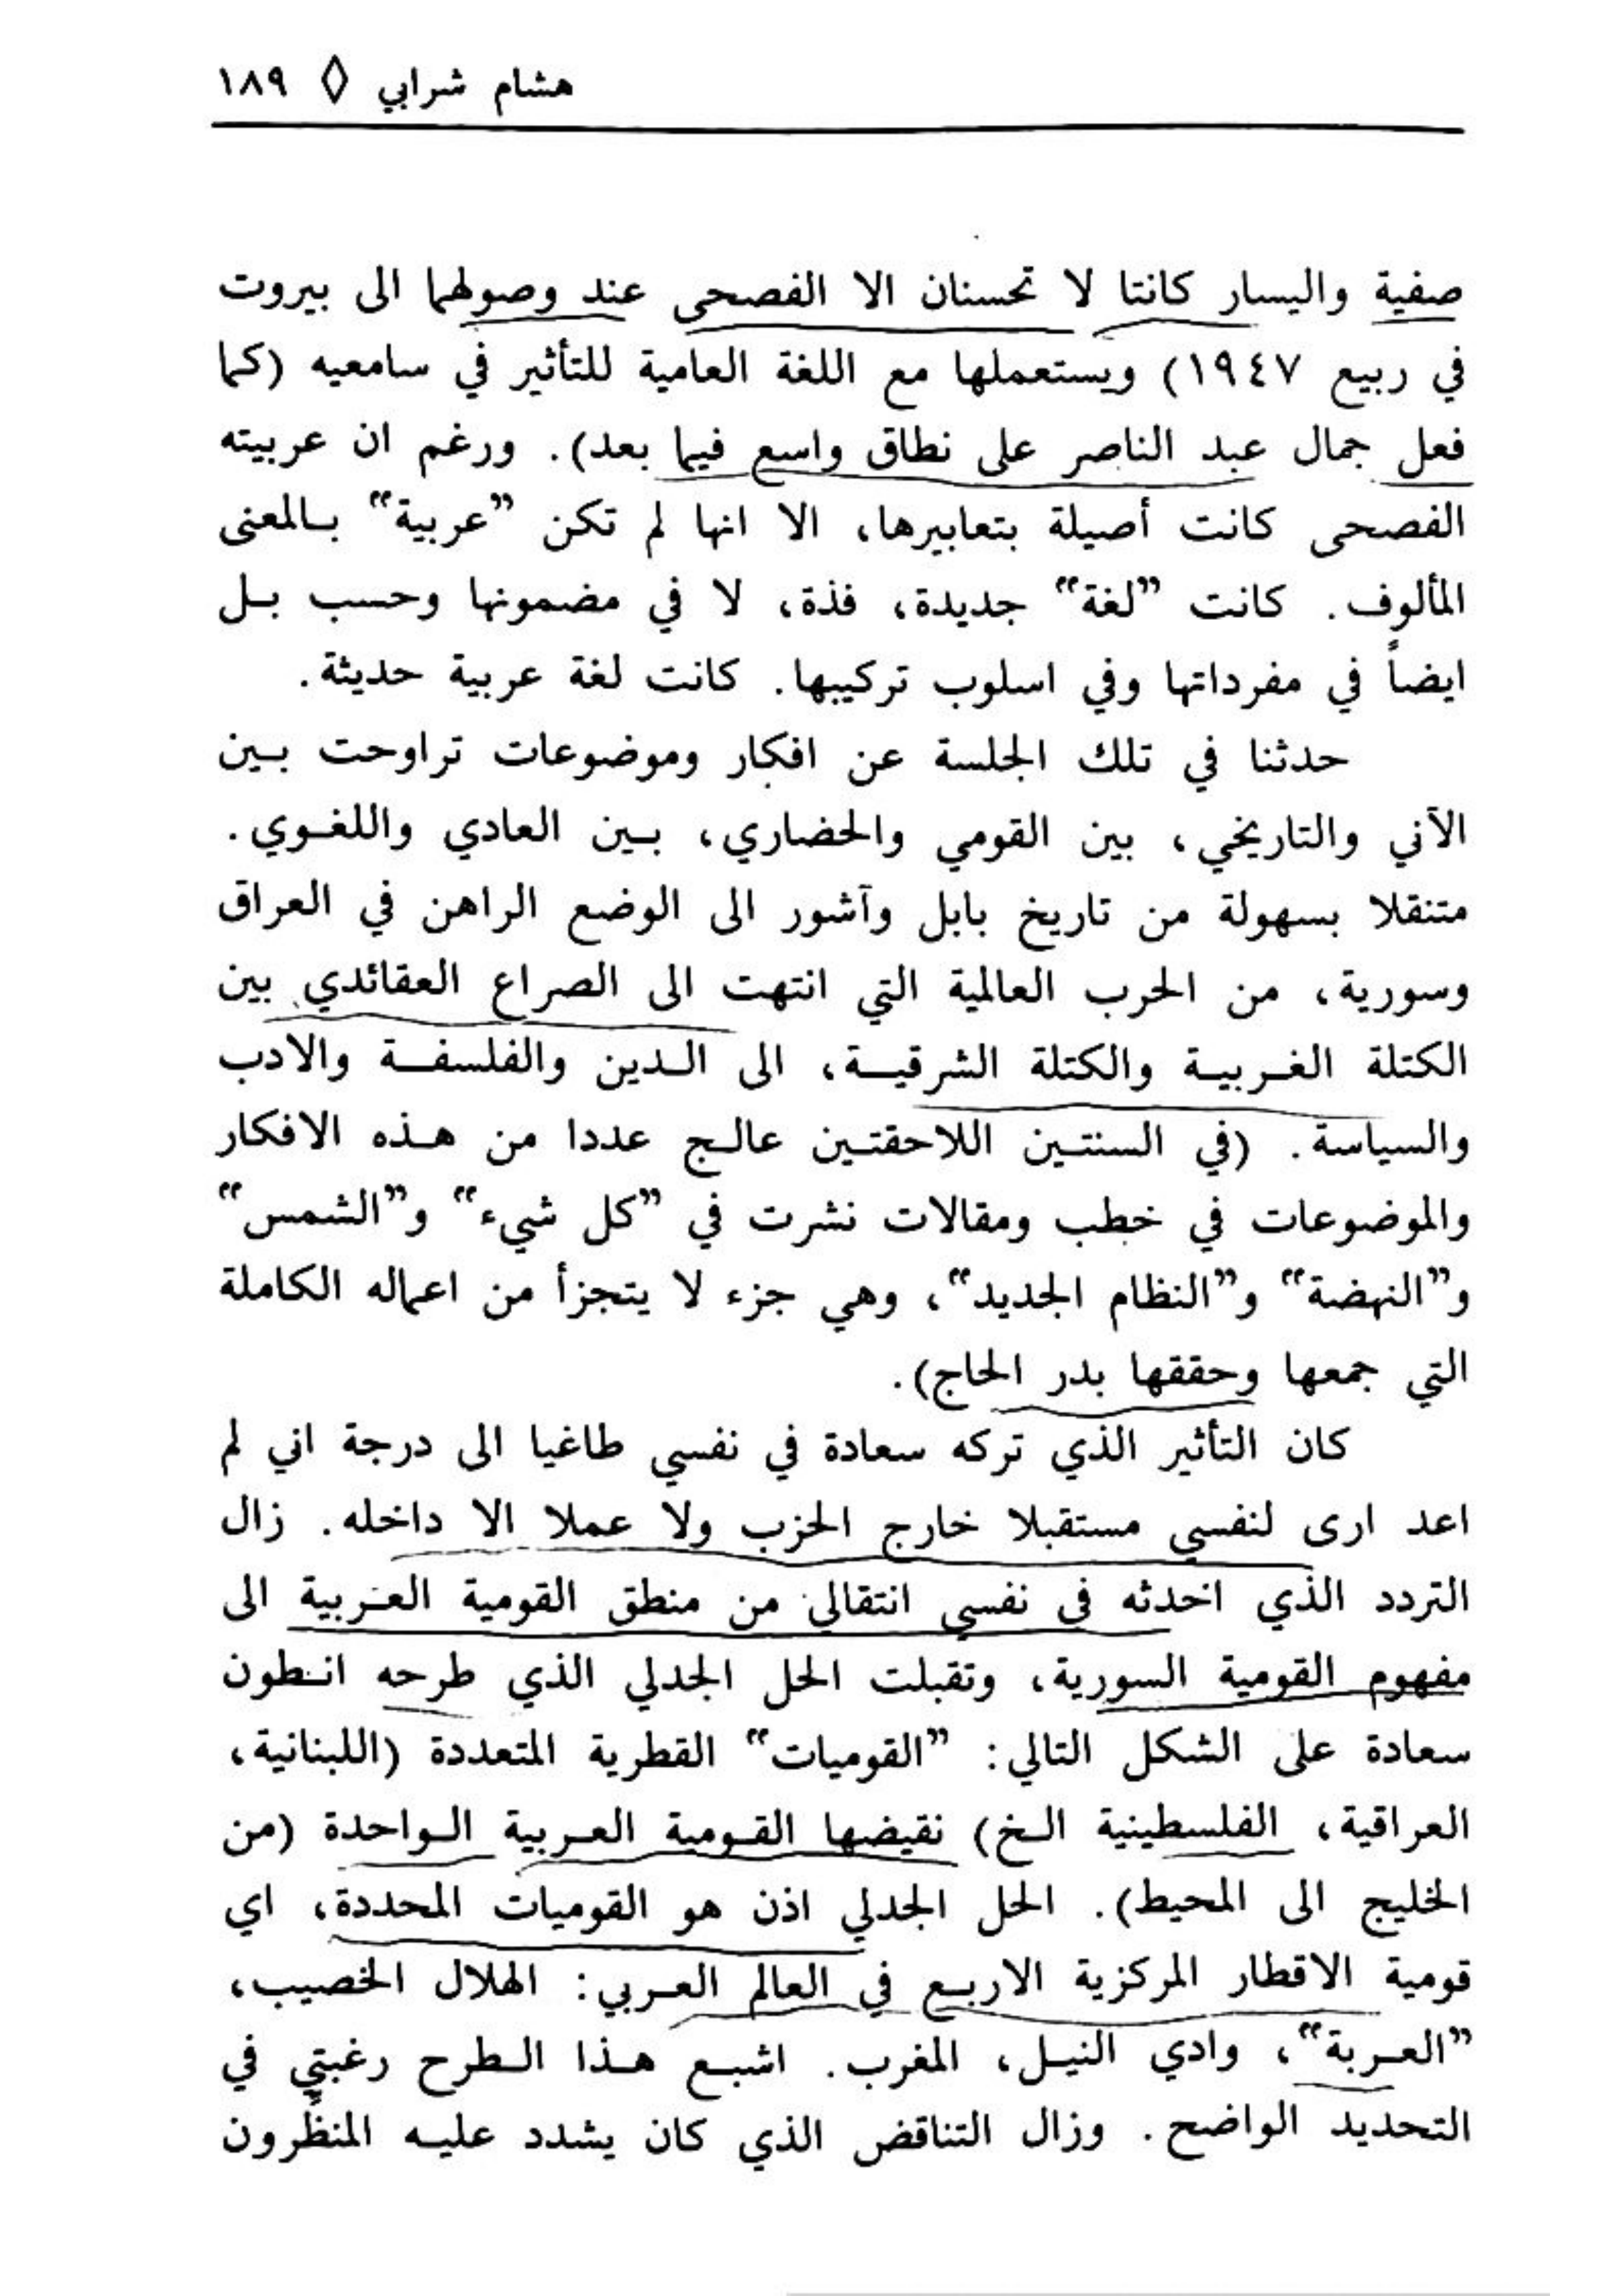 هشام شرابي ◊ ١٨٩
صفية واليسار كانتا لا تحسنان الا الفصحى عند وصولهما الى بيروت
في ربيع ١٩٤٧) ويستعملها مع اللغة العامية للتأثير في سامعيه (كما
فعل جمال عبد الناصر على نطاق واسع فيما بعد). ورغم ان عربيته
الفصحى كانت أصيلة بتعابيرها، الا انها لم تكن ”عربية“ بالمعنى
المألوف. كانت ”لغة“ جديدة، فذة، لا في مضمونها وحسب بل
ايضاً في مفرداتها وفي اسلوب تركيبها. كانت لغة عربية حديثة.
حدثنا في تلك الجلسة عن افكار وموضوعات تراوحت بين
الآني والتاريخي، بين القومي والحضاري، بين العادي واللغوي.
متنقلا بسهولة من تاريخ بابل وآشور الى الوضع الراهن في العراق
وسورية، من الحرب العالمية التي انتهت الى الصراع العقائدي بين
الكتلة الغربية والكتلة الشرقية، الى الدين والفلسفة والادب
والسياسة. (في السنتين اللاحقتين عالج عددا من هذه الافكار
والموضوعات في خطب ومقالات نشرت في ”كل شيء“ و”الشمس“
و”النهضة“ و”النظام الجديد“، وهي جزء لا يتجزأ من اعماله الكاملة
التي جمعها وحققها بدر الحاج).
كان التأثير الذي تركه سعادة في نفسي طاغيا الى درجة اني لم
اعد ارى لنفسي مستقبلا خارج الحزب ولا عملا الا داخله. زال
التردد الذي احدثه في نفسي انتقالي من منطق القومية العربية الى
مفهوم القومية السورية، وتقبلت الحل الجدلي الذي طرحه انطون
سعادة على الشكل التالي: ”القوميات“ القطرية المتعددة (اللبنانية،
العراقية، الفلسطينية الخ) نقيضها القومية العربية الواحدة (من
الخليج الى المحيط). الحل الجدلي اذن هو القوميات المحددة، اي
قومية الاقطار المركزية الاربع في العالم العربي: الهلال الخصيب،
”العربة“، وادي النيل، المغرب. اشبع هذا الطرح رغبتي في
التحديد الواضح. وزال التناقض الذي كان يشدد عليه المنظّرون